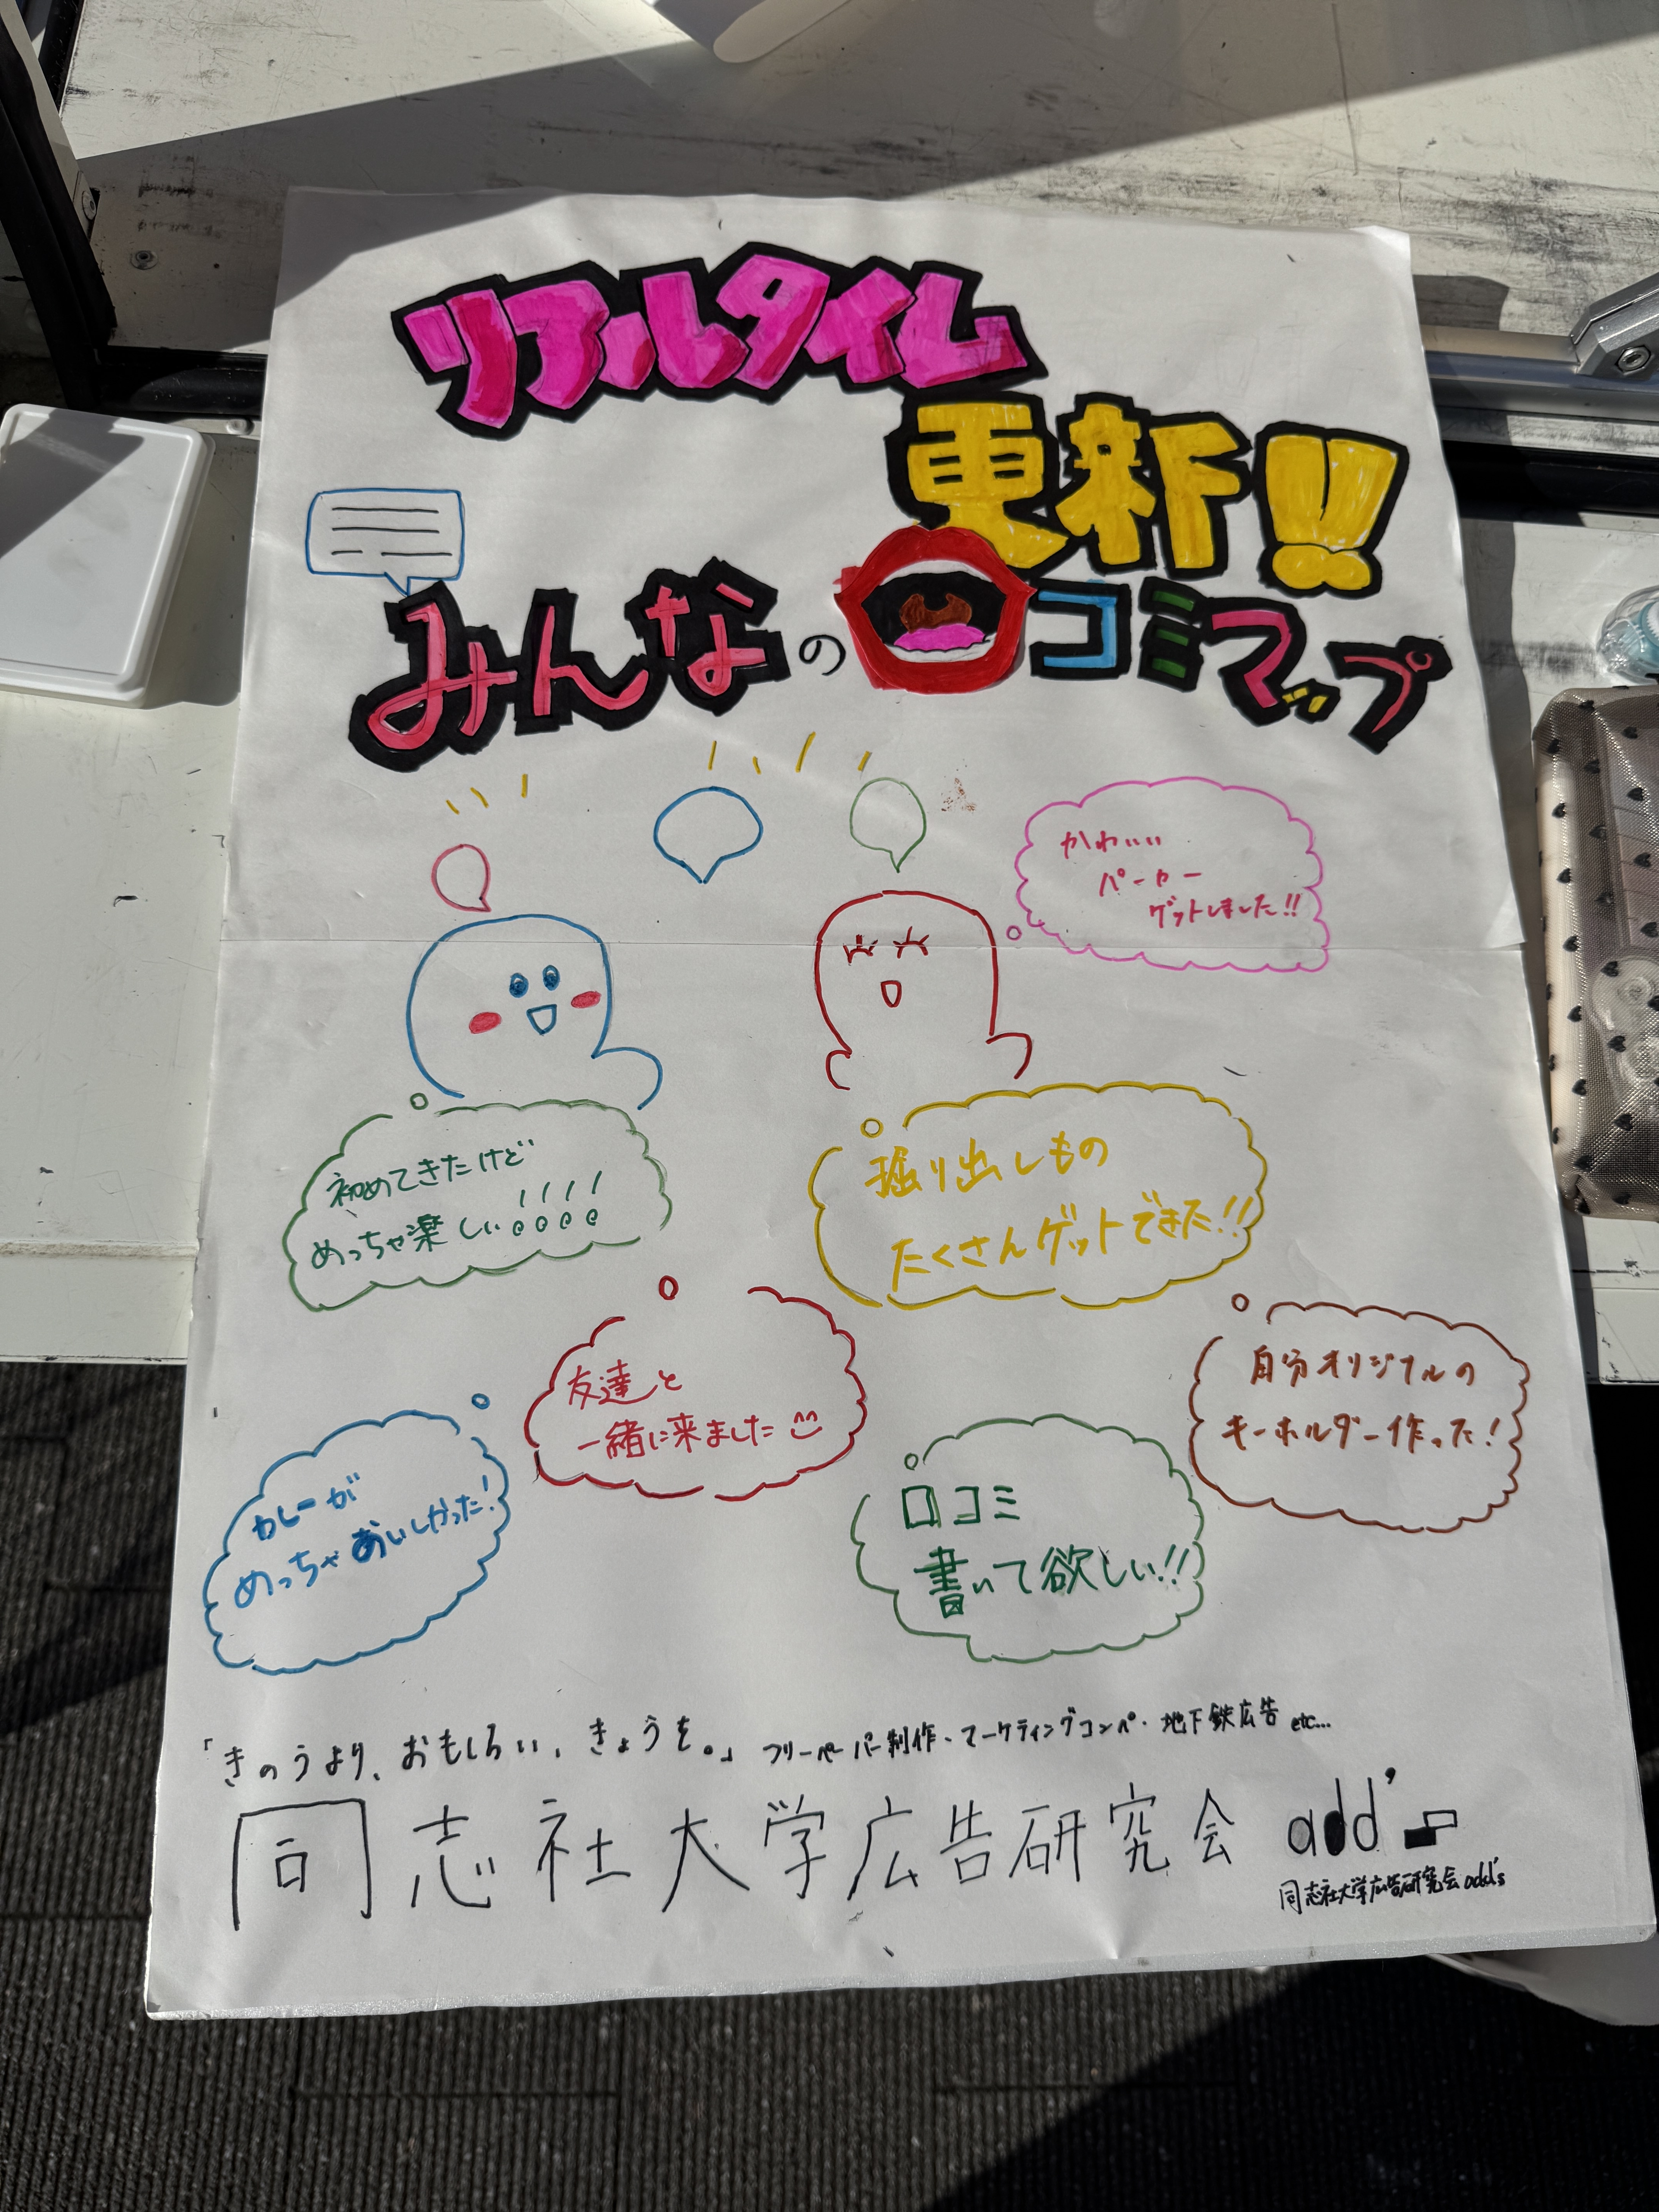 リアルタイム
更新!!
みんなの口コミマップ
かわいい
パーカー
ゲットしました!!
初めてきたけど
めっちゃ楽しい!!!!
掘り出しもの
たくさんゲットできた!!
友達と
一緒に来ました
自分オリジナルの
キーホルダー作った!
カレーが
めっちゃおいしかった!
口コミ
書いて欲しい!!
「きのうより、おもしろい、きょうを。」 フリーペーパー制作・マーケティングコンペ・地下鉄広告 etc...
同志社大学広告研究会 add's
同志社大学広告研究会 add's